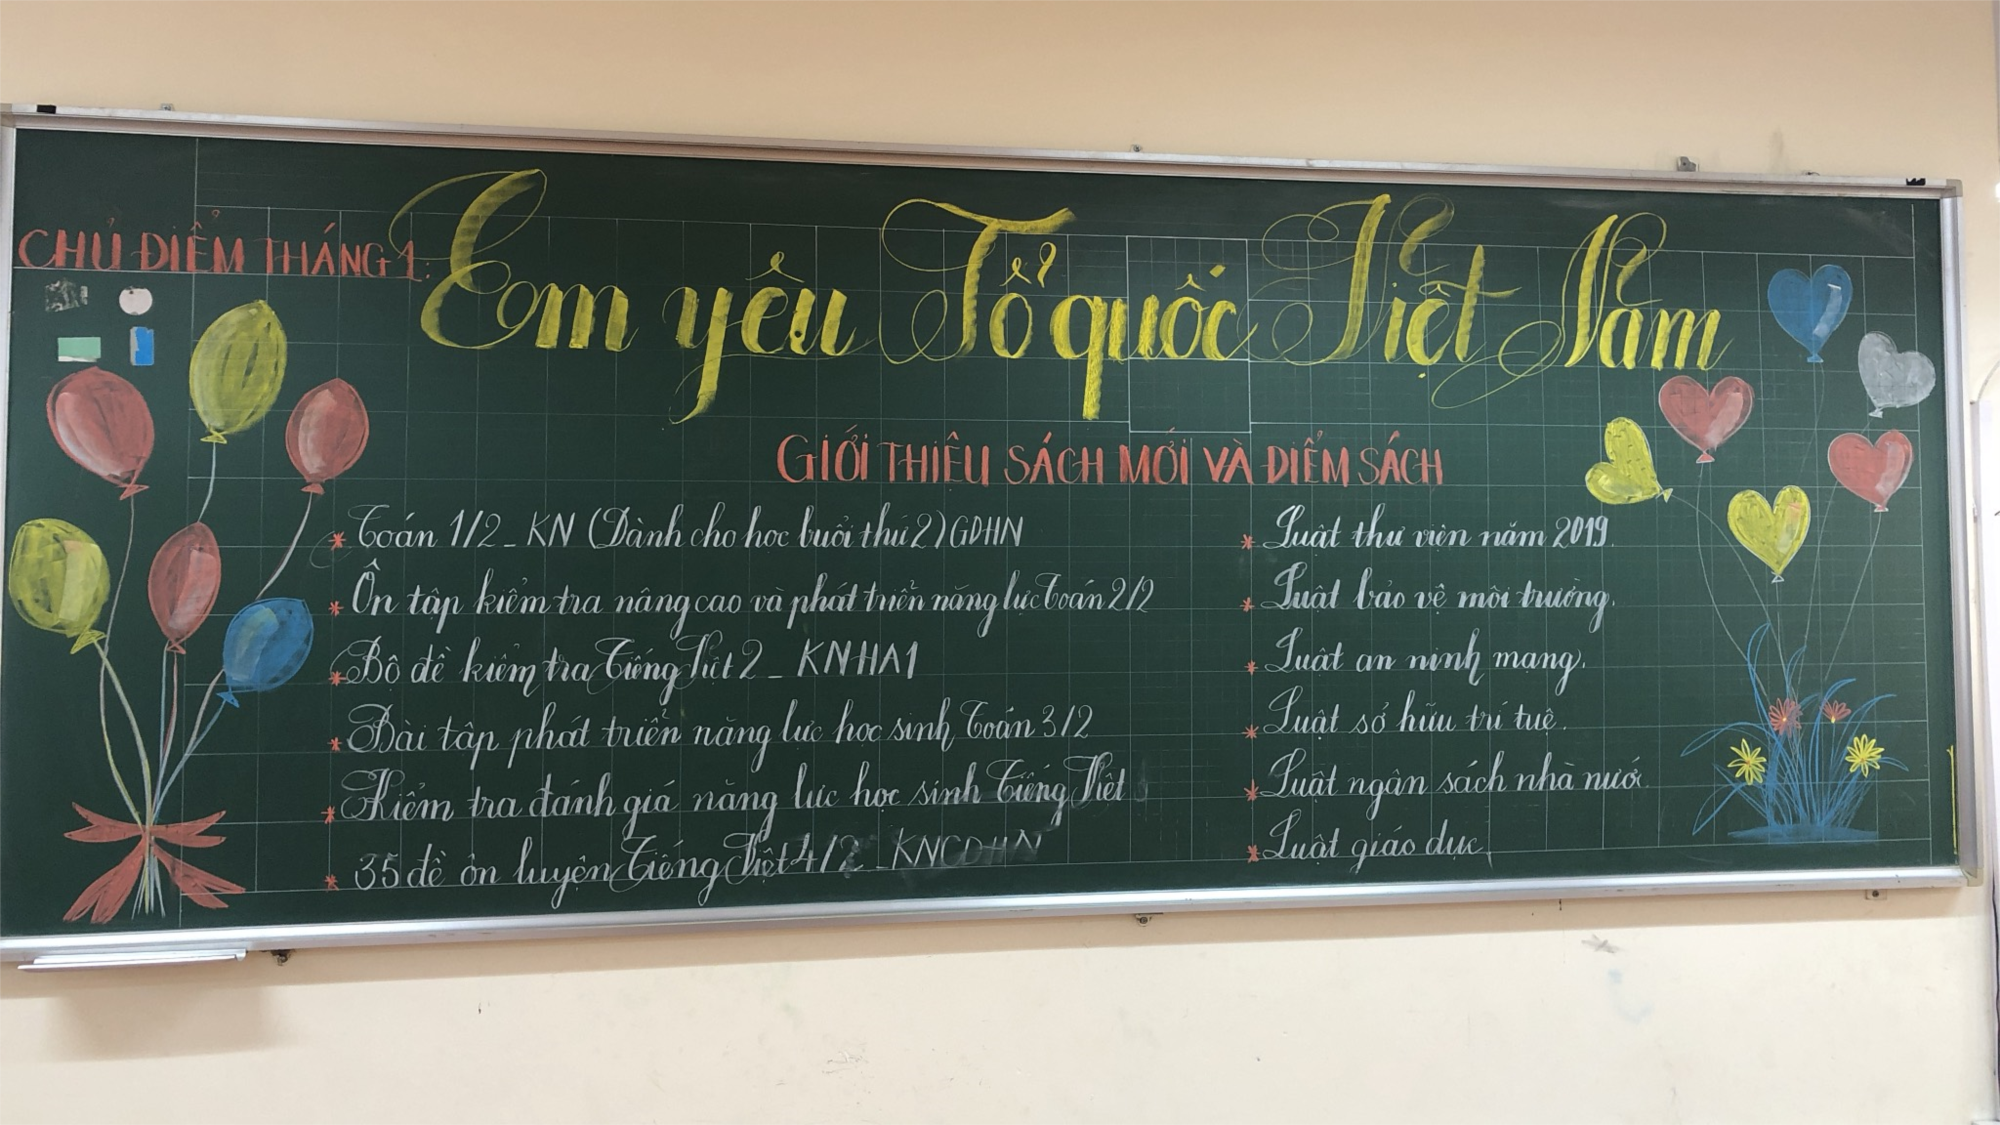 CHỦ ĐIỂM THÁNG 1:
Em yêu Tổ quốc Việt Nam
GIỚI THIỆU SÁCH MỚI VÀ ĐIỂM SÁCH
* Toán 1/2 - KN (Dành cho học buổi thứ 2) GDHN
* Ôn tập kiểm tra nâng cao và phát triển năng lực Toán 2/2
* Bộ đề kiểm tra Tiếng Việt 2 - KNHA1
* Bài tập phát triển năng lực học sinh Toán 3/2
* Kiểm tra đánh giá năng lực học sinh Tiếng Việt
* 35 đề ôn luyện Tiếng Việt 4/2 - KNCDHN
* Luật thư viện năm 2019.
* Luật bảo vệ môi trường.
* Luật an ninh mạng.
* Luật sở hữu trí tuệ.
* Luật ngân sách nhà nước.
* Luật giáo dục.